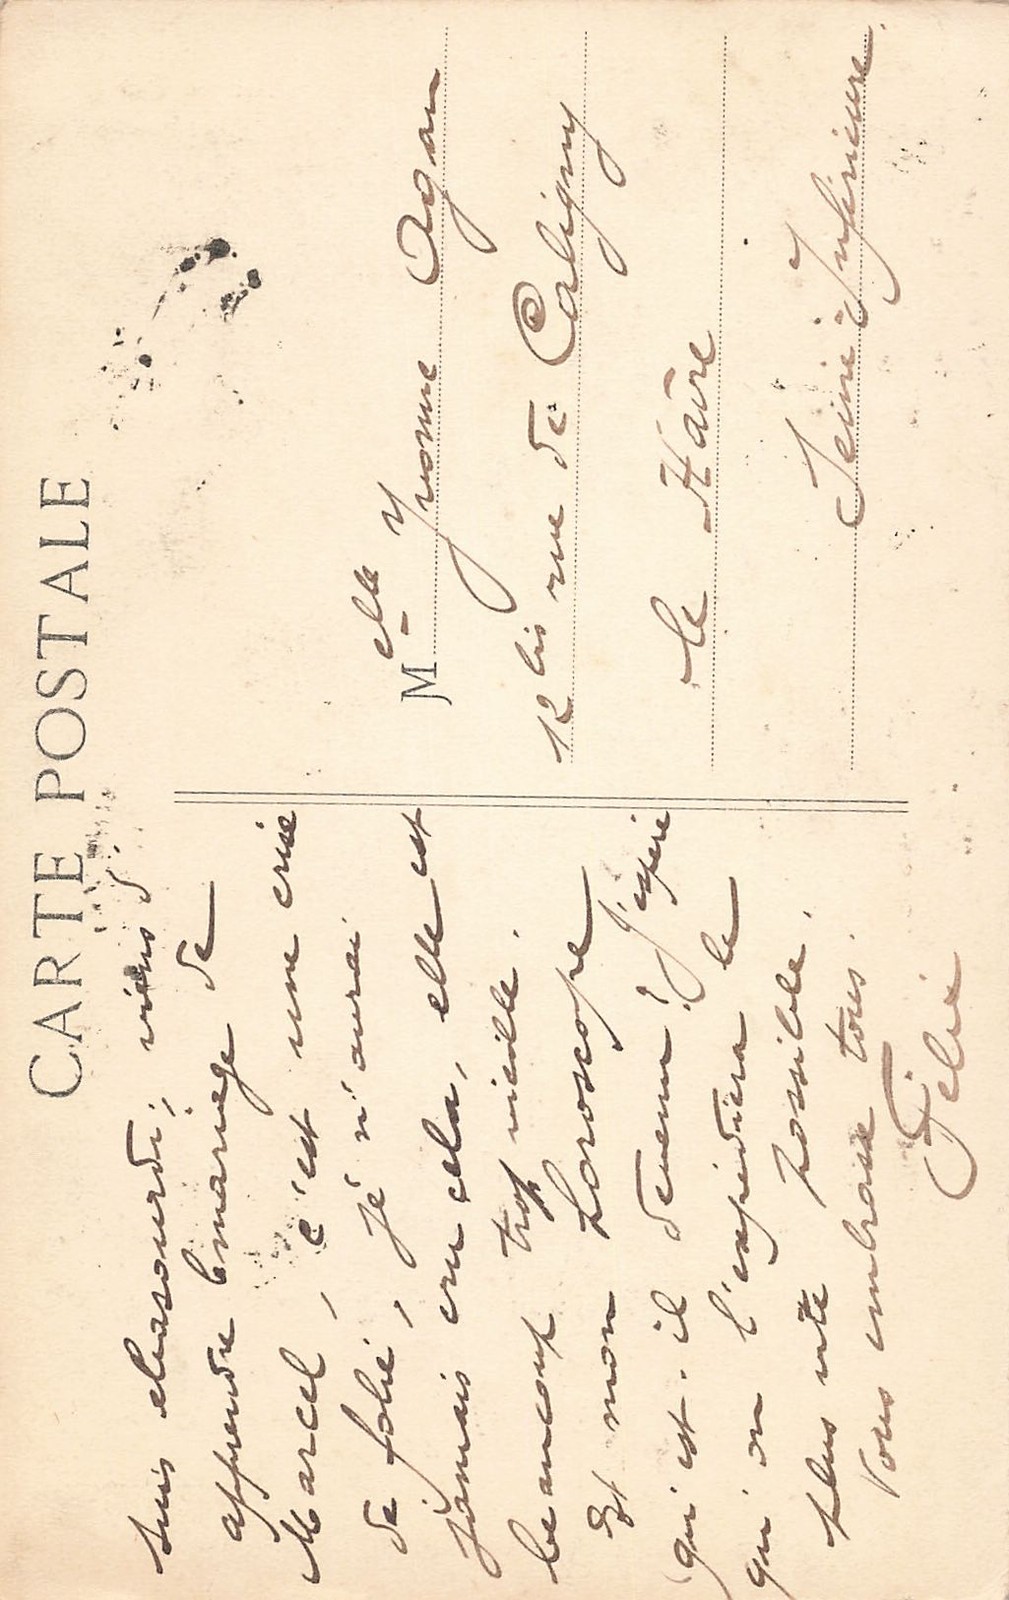 CARTE POSTALE
suis abasourdi, viens d'
apprendre le mariage de
Marcel, c'est une crise
de folie, je n'aurai
jamais cru cela, elle est
beaucoup trop vieille.
Et mon horoscope
qu'est-il devenu? J'espère
qu'on l'expédiera le
plus vite possible.
Vous embrasse tous.
Félix
Melle Yvonne Agan
12 bis rue de Caligny
Le Havre
Seine-Inférieure.